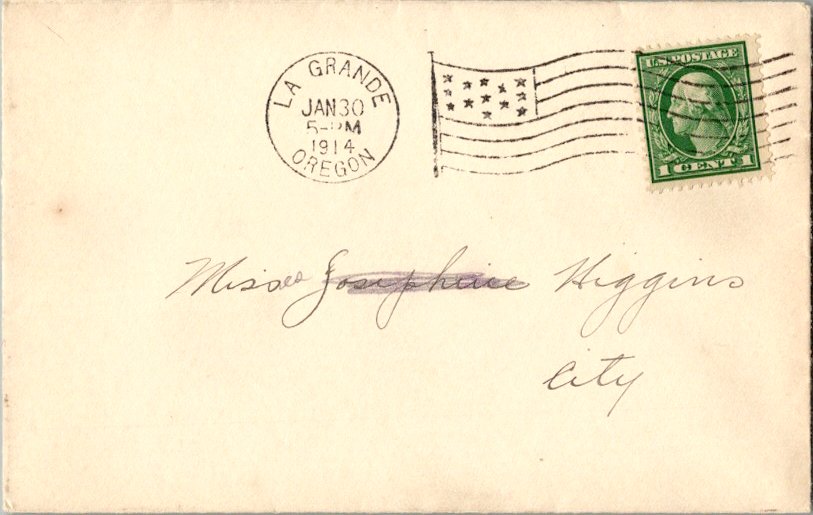 LA GRANDE
JAN 30
5-PM
1914
OREGON
U.S. POSTAGE
1 CENT 1
Misses Josephine Higgins
City